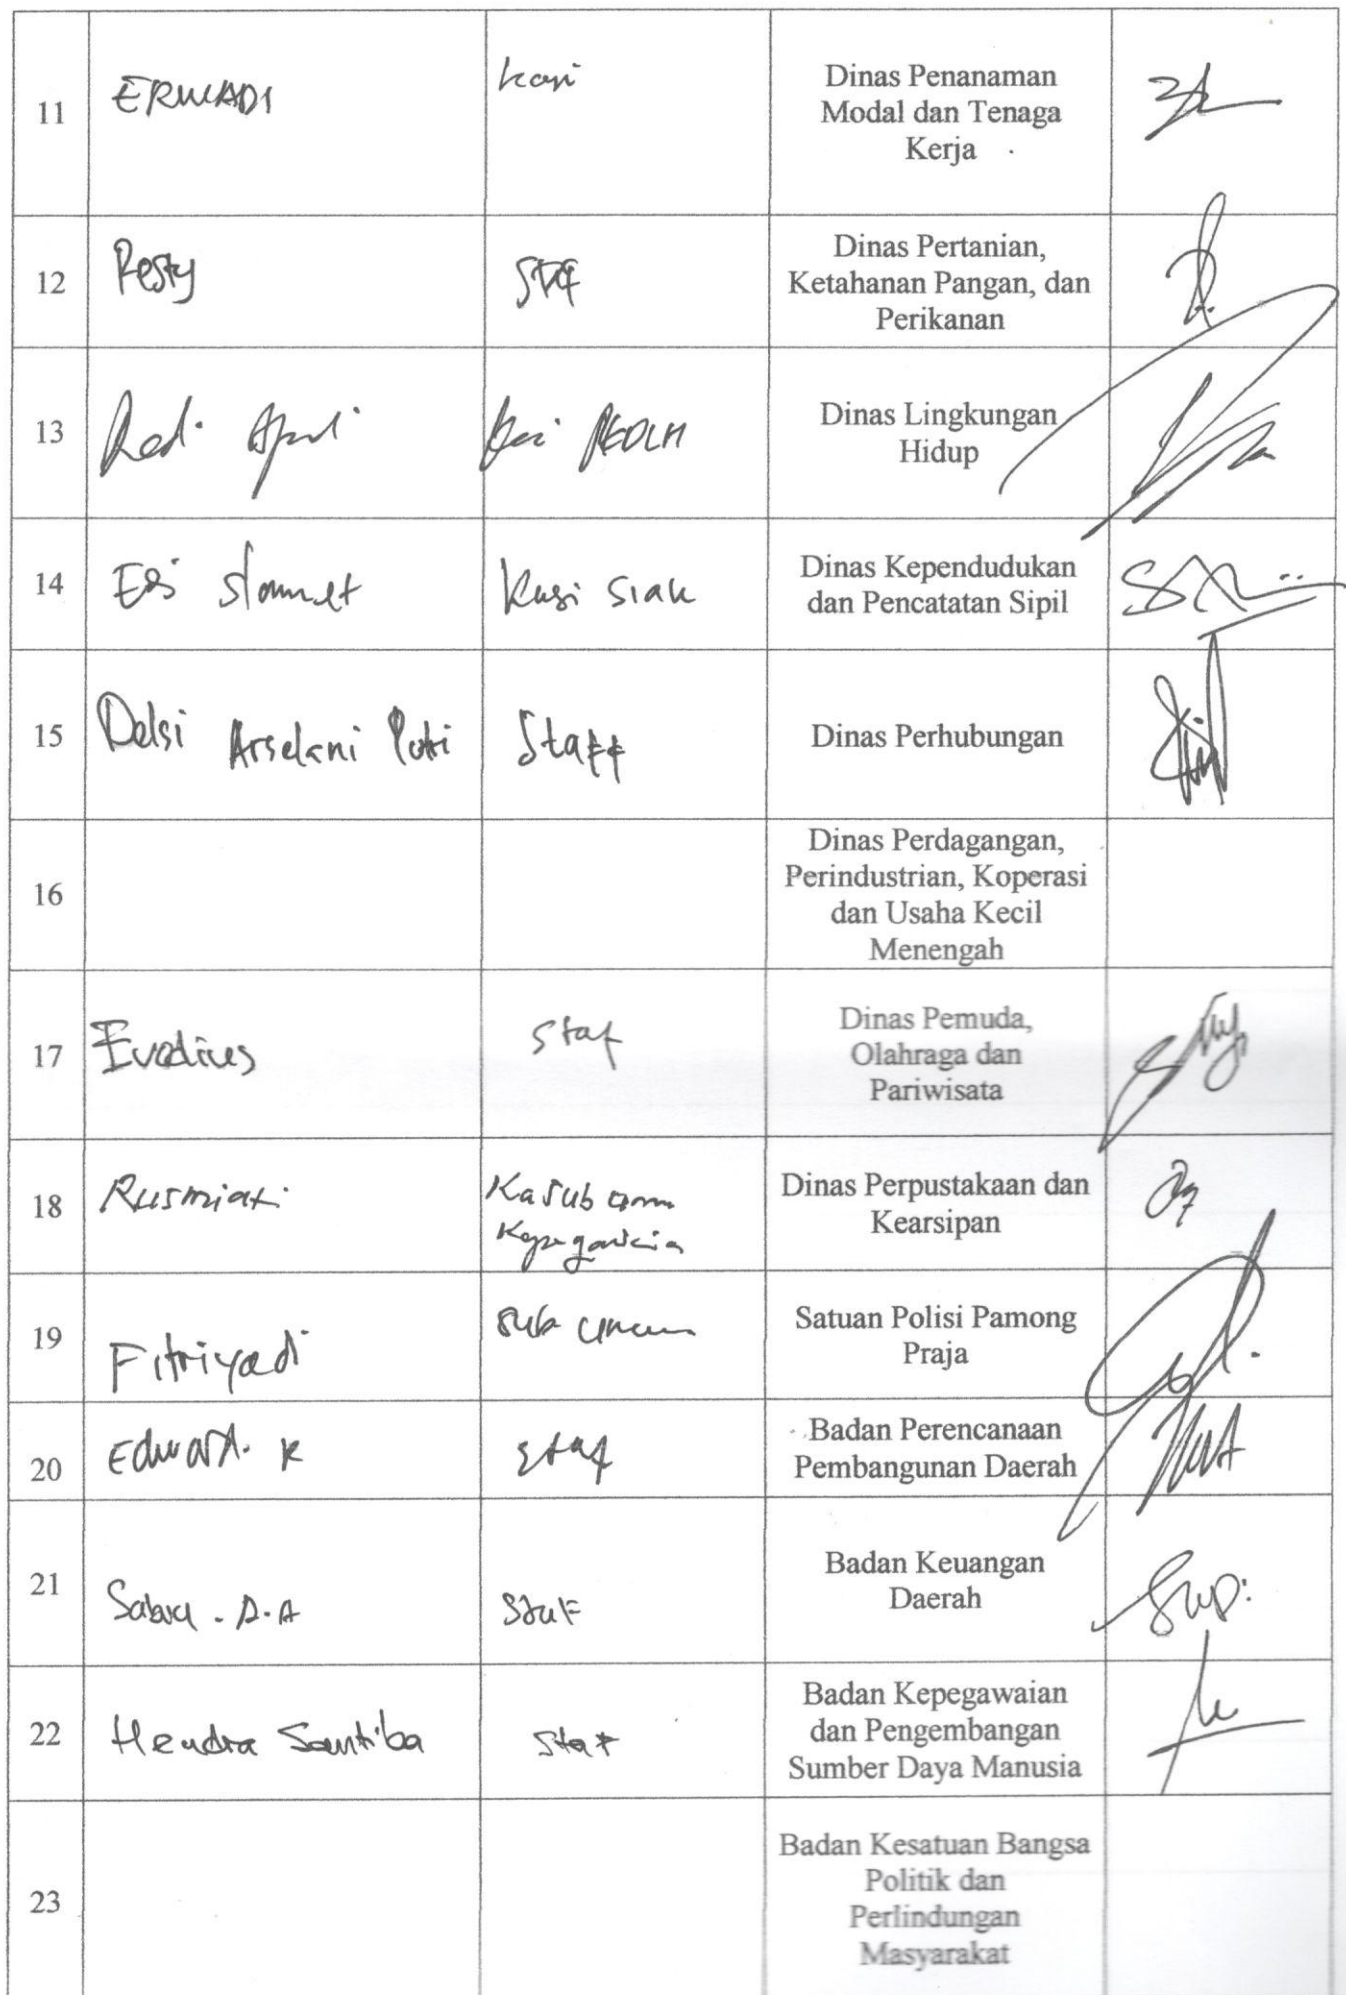 11
ERWADI
Kasi
Dinas Penanaman
Modal dan Tenaga
Kerja
12
Resty
Staf
Dinas Pertanian,
Ketahanan Pangan, dan
Perikanan
13
Dinas Lingkungan
Hidup
14
Edi Slamet
Kasi Siak
Dinas Kependudukan
dan Pencatatan Sipil
15
Delsi Arselani Putri
Staff
Dinas Perhubungan
16
Dinas Perdagangan,
Perindustrian, Koperasi
dan Usaha Kecil
Menengah
17
Evodius
Staf
Dinas Pemuda,
Olahraga dan
Pariwisata
18
Rusmiati
Kasub umum
Kepegawaian
Dinas Perpustakaan dan
Kearsipan
19
Fitriyadi
Sub umum
Satuan Polisi Pamong
Praja
20
Edward. K
Staf
Badan Perencanaan
Pembangunan Daerah
21
D.A
Staf
Badan Keuangan
Daerah
22
Hendra Santiba
Staf
Badan Kepegawaian
dan Pengembangan
Sumber Daya Manusia
23
Badan Kesatuan Bangsa
Politik dan
Perlindungan
Masyarakat